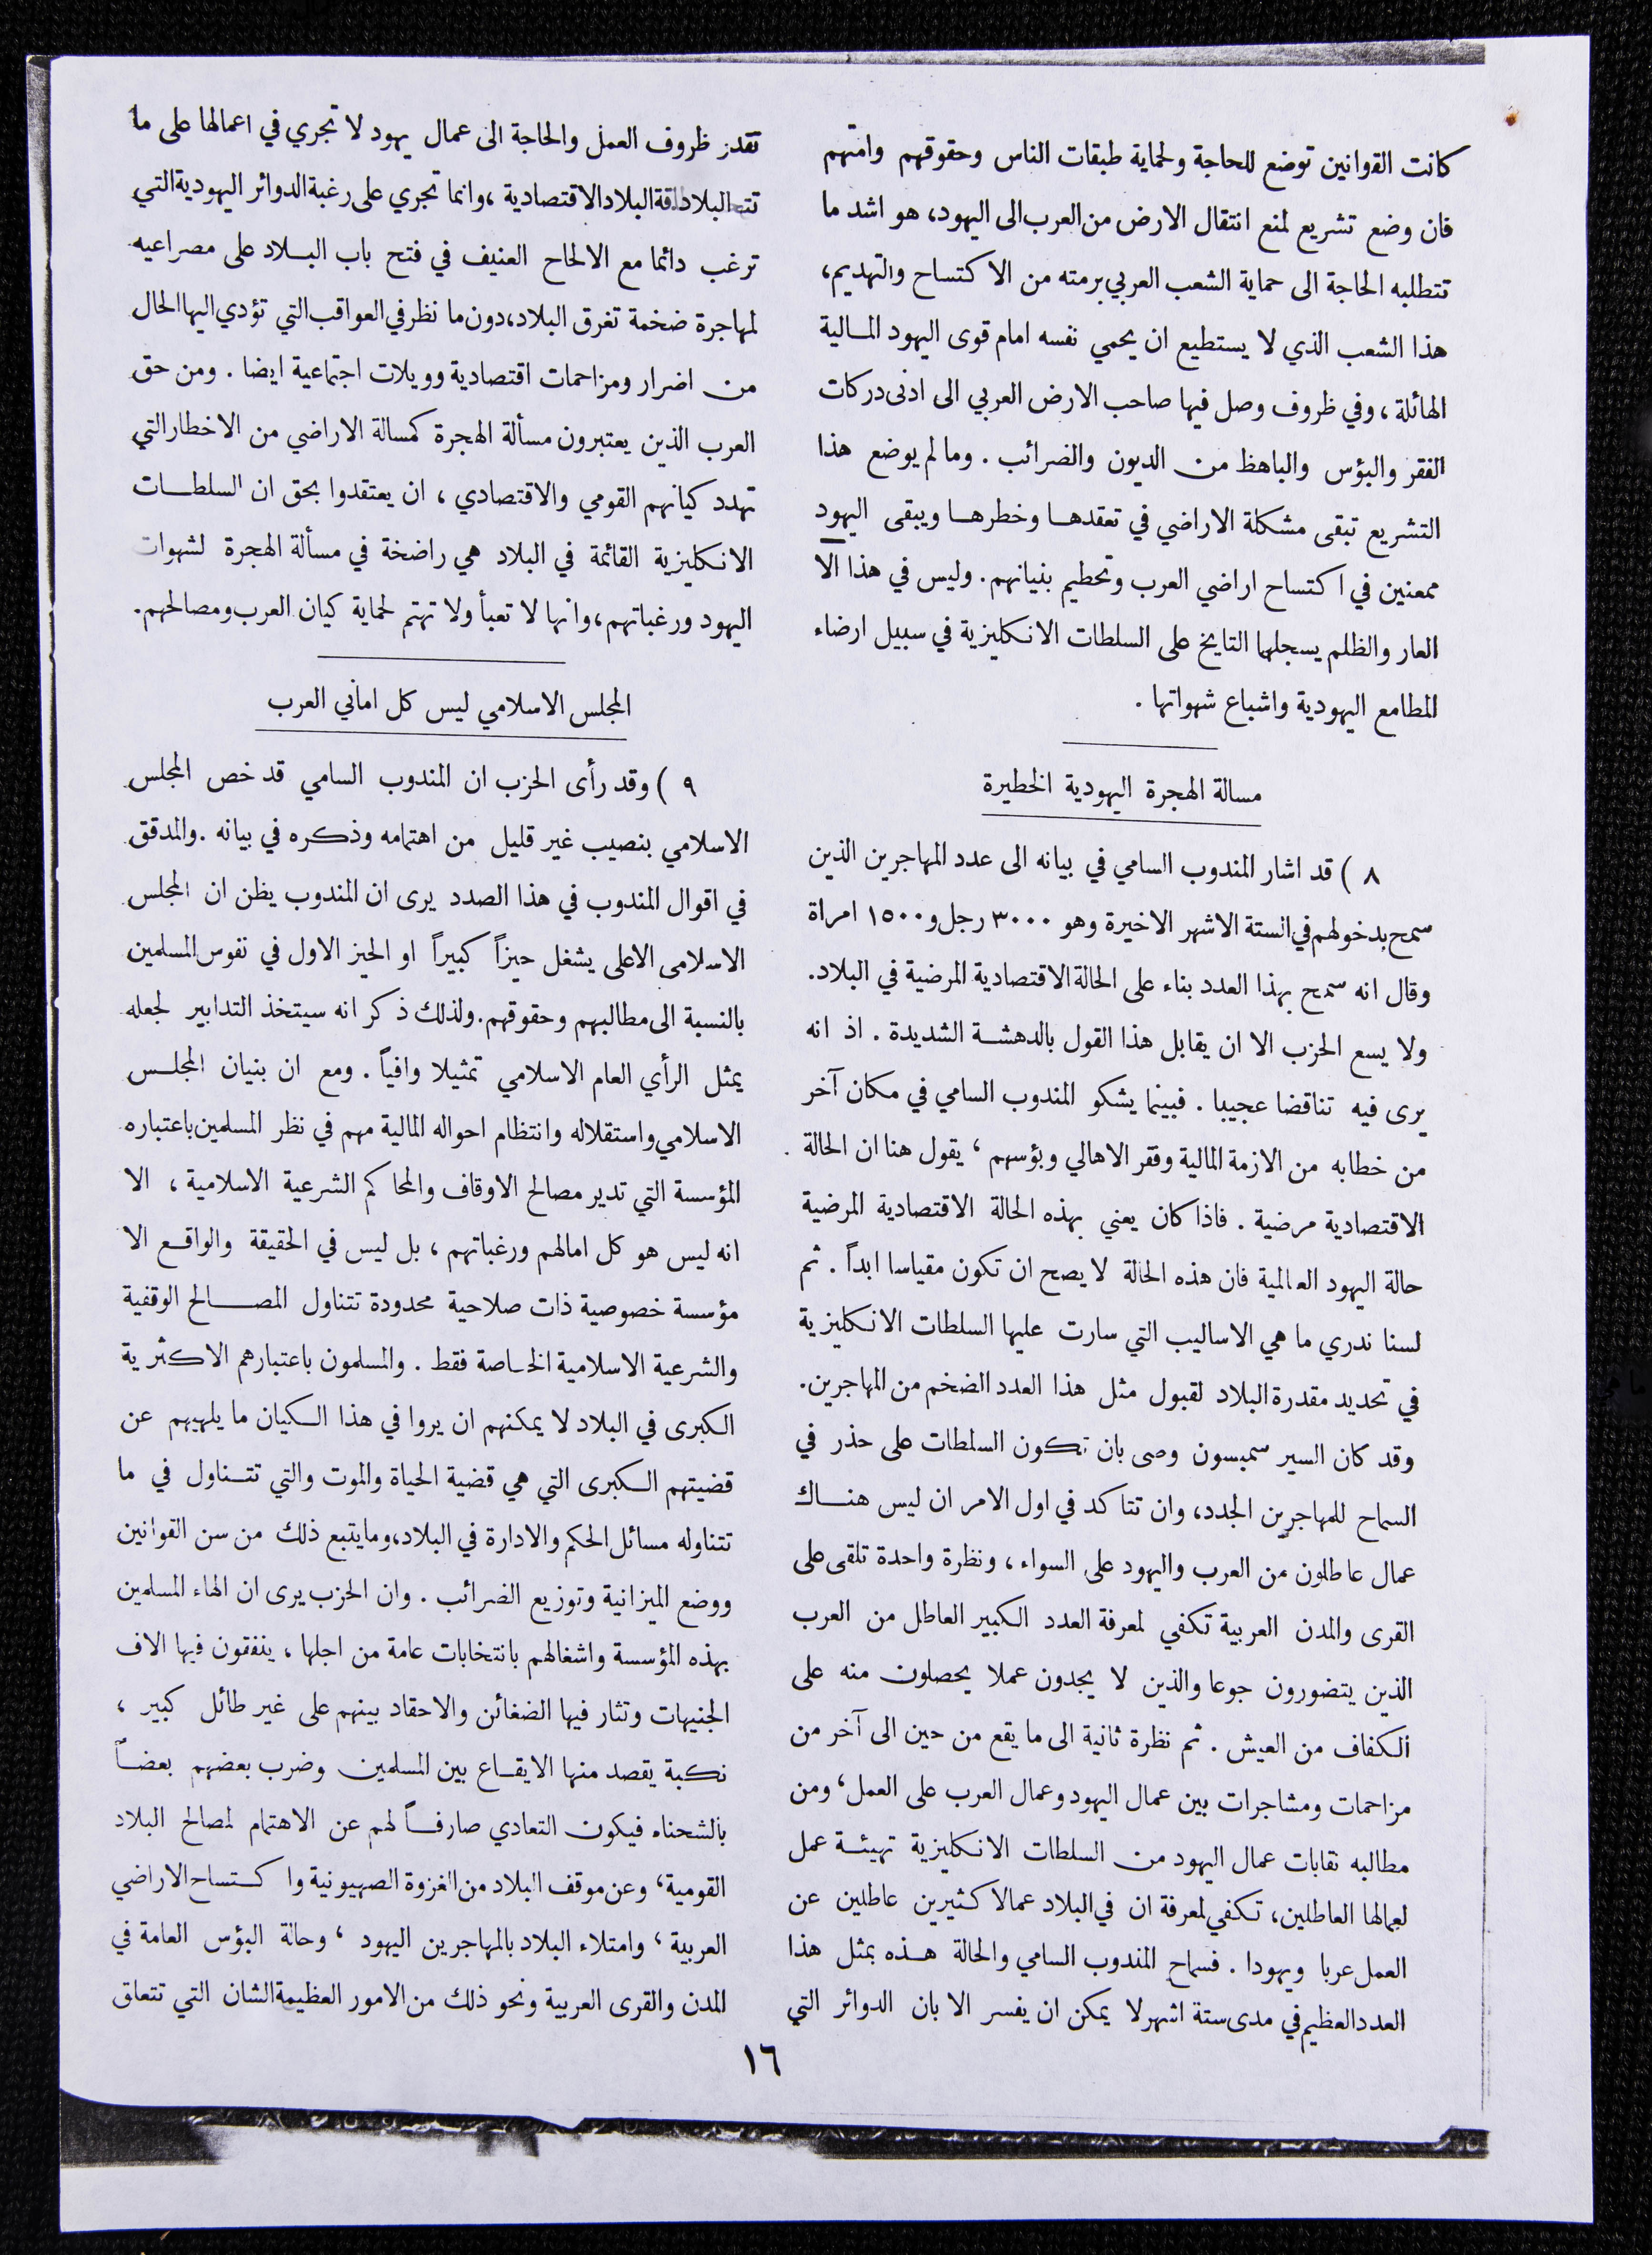 كانت القوانين توضع للحاجة ولحماية طبقات الناس وحقوقهم وامتهم
فان وضع تشريع لمنع انتقال الارض من العرب الى اليهود، هو اشد ما
تتطلبه الحاجة الى حماية الشعب العربي برمته من الاكتساح والتهديم،
هذا الشعب الذي لا يستطيع ان يحمي نفسه امام قوى اليهود المالية
الهائلة ، وفي ظروف وصل فيها صاحب الارض العربي الى ادنى دركات
الفقر والبؤس والباهظ من الديون والضرائب . وما لم يوضع هذا
التشريع تبقى مشكلة الاراضي في تعقدها وخطرها ويبقى اليهود
ممعنين في اكتساح اراضي العرب وتحطيم بنيانهم . وليس في هذا الا
العار والظلم يسجلهما التايخ على السلطات الانكليزية في سبيل ارضاء
المطامع اليهودية واشباع شهواتها .
مسالة الهجرة اليهودية الخطيرة
٨ ) قد اشار المندوب السامي في بيانه الى عدد المهاجرين الذين
سمح بدخولهم في الستة الاشهر الاخيرة وهو ٣٠٠٠ رجل و ١٥٠٠ امراة
وقال انه سمح بهذا العدد بناء على الحالة الاقتصادية المرضية في البلاد.
ولا يسع الحزب الا ان يقابل هذا القول بالدهشة الشديدة . اذ انه
يرى فيه تناقضا عجيبا . فبينما يشكو المندوب السامي في مكان آخر
من خطابه من الازمة المالية وفقر الاهالي وبؤسهم ، يقول هنا ان الحالة
الاقتصادية مرضية . فاذا كان يعني بهذه الحالة الاقتصادية المرضية
حالة اليهود العالمية فان هذه الحالة لا يصح ان تكون مقياسا ابداً . ثم
لسنا ندري ما هي الاساليب التي سارت عليها السلطات الانكليزية
في تحديد مقدرة البلاد لقبول مثل هذا العدد الضخم من المهاجرين.
وقد كان السير سمبسون وصى بان تكون السلطات على حذر في
السماح للمهاجرين الجدد، وان تتاكد في اول الامر ان ليس هناك
عمال عاطلون من العرب واليهود على السواء ، ونظرة واحدة تلقى على
القرى والمدن العربية تكفي لمعرفة العدد الكبير العاطل من العرب
الذين يتضورون جوعا والذين لا يجدون عملا يحصلون منه على
الكفاف من العيش . ثم نظرة ثانية الى ما يقع من حين الى آخر من
مزاحمات ومشاجرات بين عمال اليهود وعمال العرب على العمل ، ومن
مطالبه نقابات عمال اليهود من السلطات الانكليزية تهيئة عمل
لعمالها العاطلين، تكفي لمعرفة ان في البلاد عمالا كثيرين عاطلين عن
العمل عربا ويهودا . فسماح المندوب السامي والحالة هذه بمثل هذا
العدد العظيم في مدى ستة اشهر لا يمكن ان يفسر الا بان الدوائر التي
تقدر ظروف العمل والحاجة الى عمال يهود لا تجري في اعمالها على ما
البلاد الاقتصادية ، وانما تجري على رغبة الدوائر اليهودية التي
ترغب دائما مع الالحاح العنيف في فتح باب البلاد على مصراعيه
لمهاجرة ضخمة تغرق البلاد، دون ما نظر في العواقب التي تؤدي اليها الحال
من اضرار ومزاحمات اقتصادية وويلات اجتماعية ايضا . ومن حق
العرب الذين يعتبرون مسألة الهجرة كمسالة الاراضي من الاخطار التي
تهدد كيانهم القومي والاقتصادي ، ان يعتقدوا بحق ان السلطات
الانكليزية القائمة في البلاد هي راضخة في مسألة الهجرة لشهوات
اليهود ورغباتهم ، وانها لا تعبأ ولا تهتم لحماية كيان العرب ومصالحهم.
المجلس الاسلامي ليس كل اماني العرب
٩ ) وقد رأى الحزب ان المندوب السامي قد خص المجلس
الاسلامي بنصيب غير قليل من اهتمامه وذكره في بيانه . والمدقق
في اقوال المندوب في هذا الصدد يرى ان المندوب يظن ان المجلس
الاسلامي الاعلى يشغل حيزاً كبيراً او الحيز الاول في نفوس المسلمين
بالنسبة الى مطالبهم وحقوقهم. ولذلك ذكر انه سيتخذ التدابير لجعله
يمثل الرأي العام الاسلامي تمثيلا وافياً . ومع ان بنيان المجلس
الاسلامي واستقلاله وانتظام احواله المالية مهم في نظر المسلمين باعتباره
المؤسسة التي تدير مصالح الاوقاف والمحاكم الشرعية الاسلامية ، الا
انه ليس هو كل امالهم ورغباتهم ، بل ليس في الحقيقة والواقع الا
مؤسسة خصوصية ذات صلاحية محدودة تتناول المصالح الوقفية
والشرعية الاسلامية الخاصة فقط . والمسلمون باعتبارهم الاكثرية
الكبرى في البلاد لا يمكنهم ان يروا في هذا الكيان ما يلهيهم عن
قضيتهم الكبرى التي هي قضية الحياة والموت والتي تتناول في ما
تتناوله مسائل الحكم والادارة في البلاد، وما يتبع ذلك من سن القوانين
ووضع الميزانية وتوزيع الضرائب . وان الحزب يرى ان الهاء المسلمين
بهذه المؤسسة واشغالهم بانتخابات عامة من اجلها ، ينفقون فيها الاف
الجنيهات وتثار فيها الضغائن والاحقاد بينهم على غير طائل كبير ،
نكبة يقصد منها الايقاع بين المسلمين وضرب بعضهم بعضاً
بالشحناء فيكون التعادي صارفاً لهم عن الاهتمام لمصالح البلاد
القومية ، وعن موقف البلاد من الغزوة الصهيونية واكتساح الاراضي
العربية ، وامتلاء البلاد بالمهاجرين اليهود ، وحالة البؤس العامة في
المدن والقرى العربية ونحو ذلك من الامور العظيمة الشان التي تتعلق
١٦